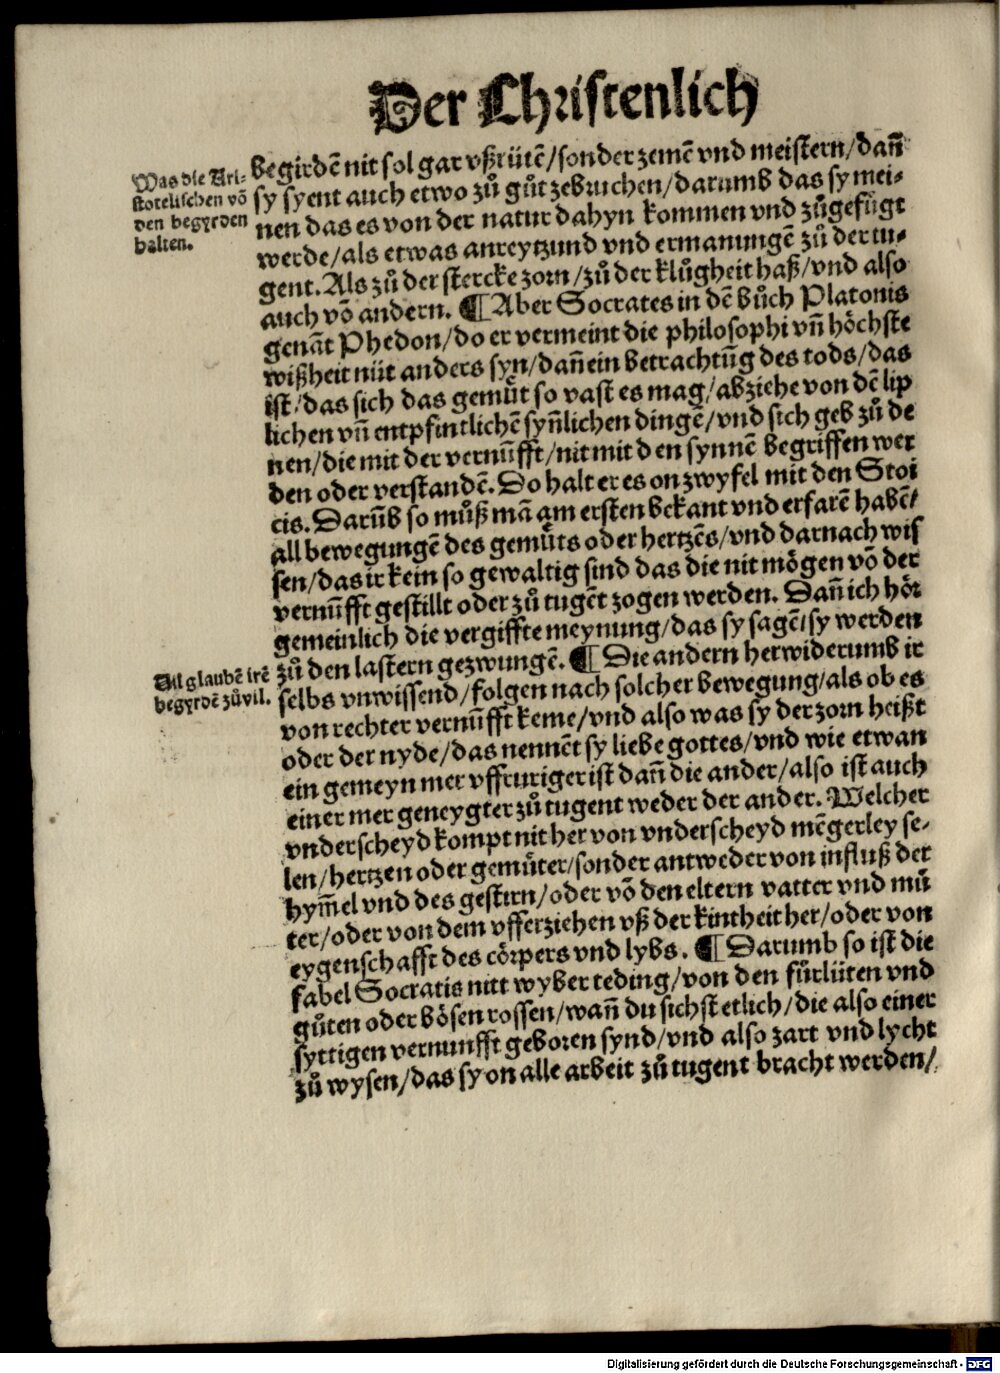 Der Christenlich
Was die Ari-
stotelischen vō
den begyrden
halten.
begirdē nit sol gar vßrütē/sonder zemē vnd meistern/dañ
sy syent auch etwo zů gůt zebruchen/darumb das sy mei-
nen das es von der natur dahyn kommen vnd zůgefügt
werde/als etwas anreytzund vnd ermanungē zů der tu-
gent. Als zů der stercke zorn/zů der klůgheit haß/vnd also
auch vō andern. ¶ Aber Socrates in dē bůch Platonis
genāt Phedon/do er vermeint die philosophi vñ höchste
wißheit nüt anders syn/dañ ein betrachtūg des tods/das
ist/das sich das gemüt so vast es mag/abziehe von dē lip
lichen vñ entpfintlichē syñlichen dingē/vnd sich geb zů de
nen/die mit der vernūfft/nit mit den synnē begriffen wer
den oder verstandē. Do halt er es on zwyfel mit den Stoi
cis. Darūb so můß mā am ersten bekant vnd erfarē habē/
all bewegungē des gemüts oder hertzēs/vnd darnach wis
sen/das ir kein so gewaltig sind das die nit mögen vō der
vernūfft gestillt oder zů tugēt zogen werden. Dañ ich hör
gemeinlich die vergiffte meynung/das sy sagē/sy werden
zů den lastern gezwungē. ¶ Die andern herwiderumb ir
Vil glaubē irē
begyrdē zůvil.
selbs vnwissend/folgen nach solcher bewegung/als ob es
von rechter vernūfft keme/vnd also was sy der zorn heißt
oder der nyde/das nennēt sy liebe gottes/vnd wie etwan
ein gemeyn mer vffruriger ist dañ die ander/also ist auch
einer mer geneygter zů tugent weder der ander. Welcher
vnderscheyd kompt nit her von vnderscheyd mēgerley se-
len/hertzen oder gemüter/sonder antweder von influß der
hym̄el vnd des gestirn/oder vō den eltern vatter vnd mů
ter/oder von dem vfferziehen vß der kintheit her/oder von
eygenschafft des cörpers vnd lybs. ¶ Darumb so ist die
fabel Socratis nitt wyber teding/von den fürlüten vnd
gůten oder bösen rossen/wañ du sichst etlich/die also einer
syttigen vernunfft geboren synd/vnd also zart vnd lycht
zů wysen/das sy on alle arbeit zů tugent bracht werden/
Digitalisierung gefördert durch die Deutsche Forschungsgemeinschaft - DFG